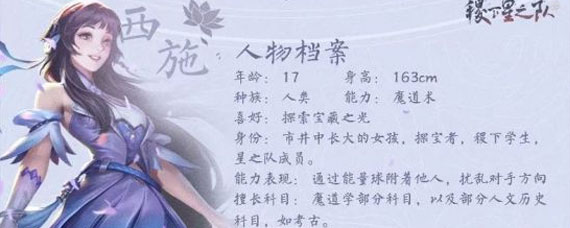 西施
稷下星之队
人物档案
年龄：17 身高：163cm
种族：人类 能力：魔道术
喜好：探索宝藏之光
身份：市井中长大的女孩，探宝者，稷下学生，
星之队成员。
能力表现：通过能量球附着他人，扰乱对手方向
擅长科目：魔道学部分科目，以及部分人文历史
科目，如考古。